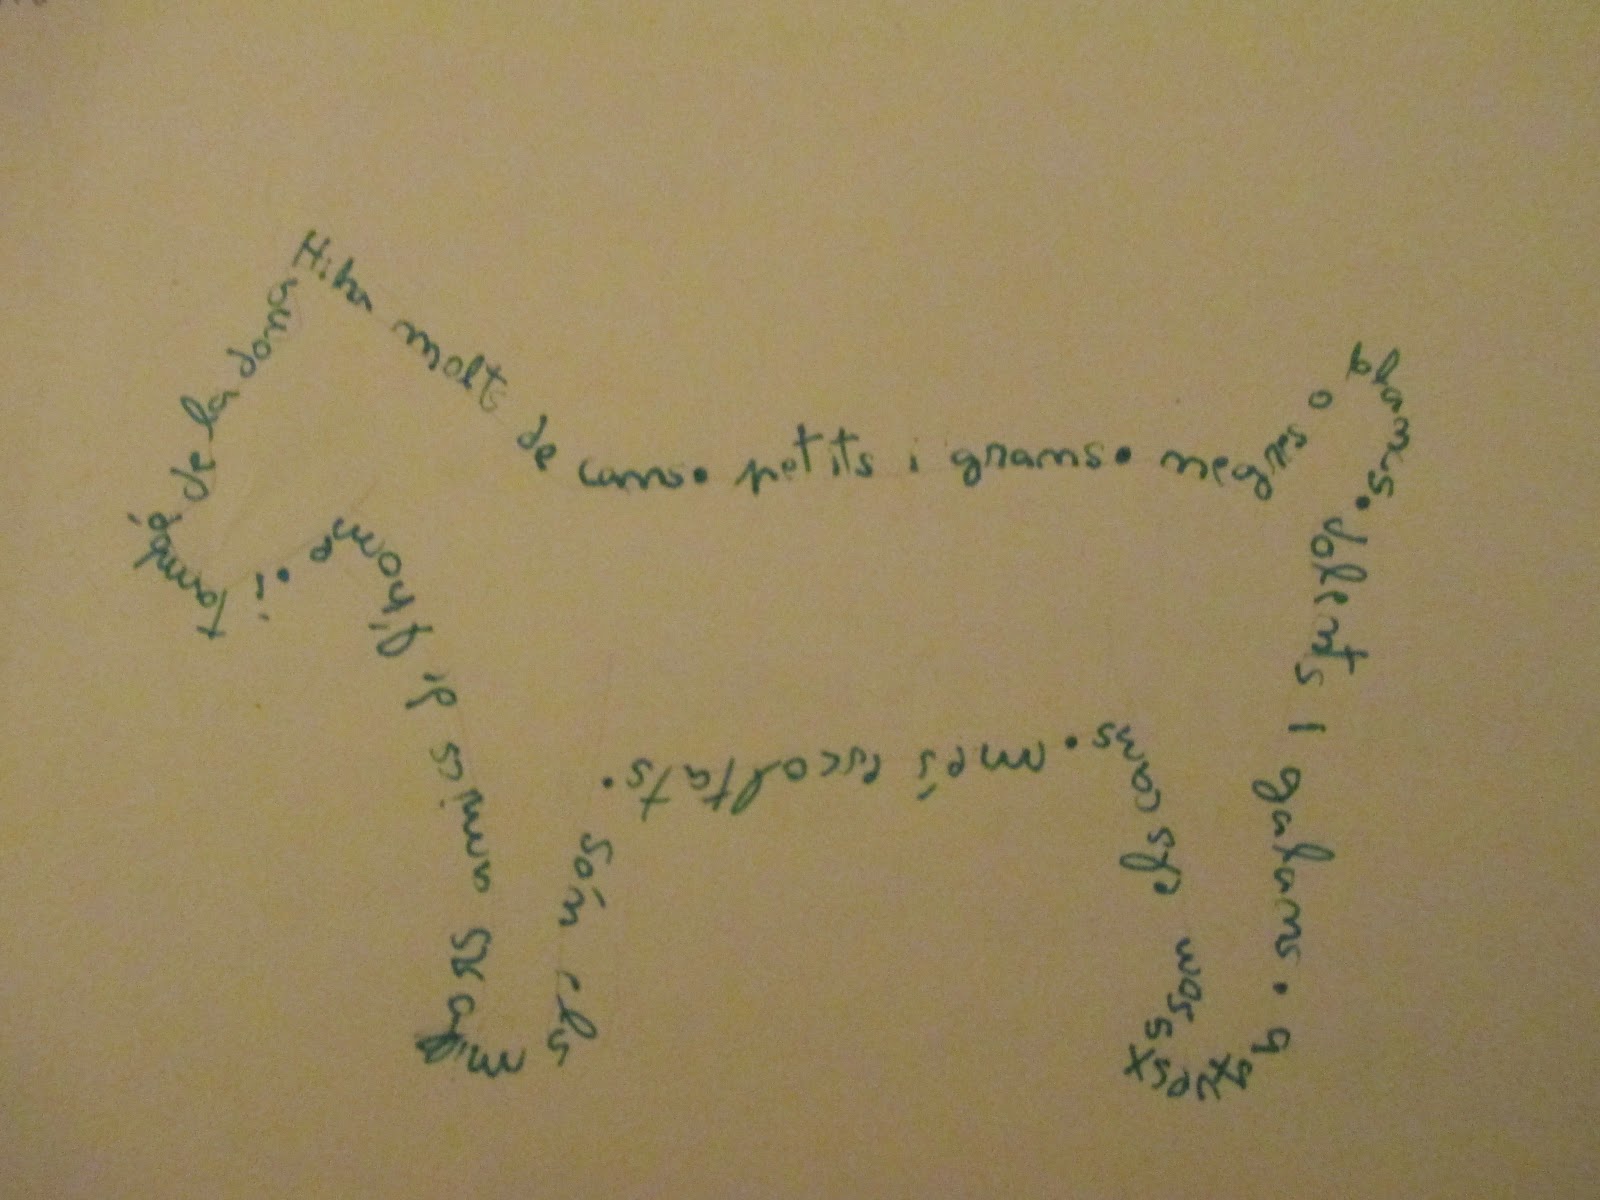 Hi ha molts de cans. petits i grans. negres o blancs. dolents I galans. són els cans. més escoltats. són els amics de l'home. i també de la dona